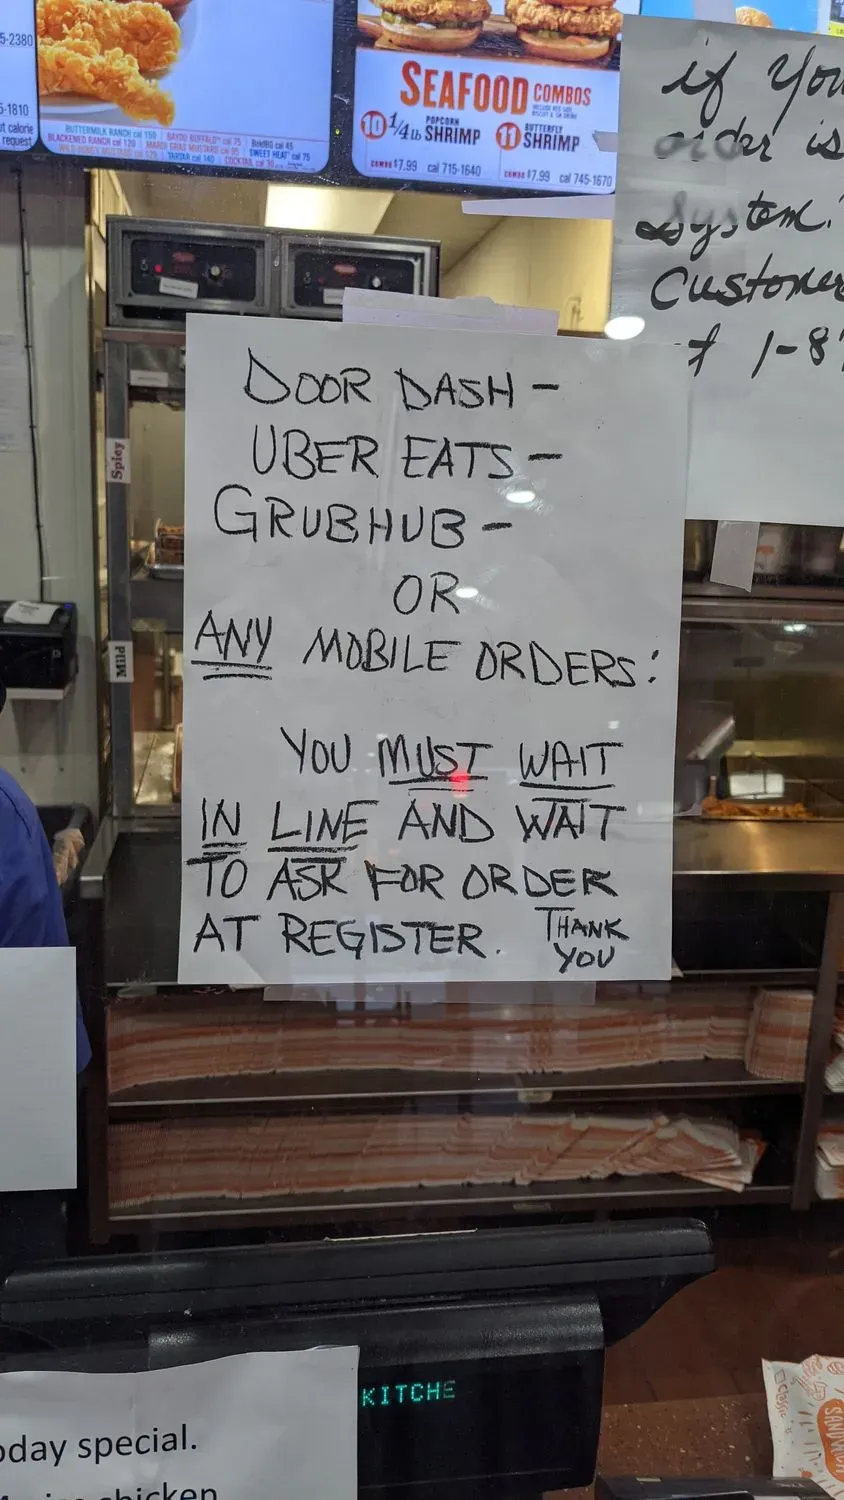 5-2380
5-1810
ut calorie
request
BUTTERMILK RANCH cal 150
BLACKENED RANCH cal 120
BAYOU BUFFALO cal 75
MARDI GRAS MUSTARD cal 95
TARTAR cal 140
BoldBQ cal 45
SWEET HEAT cal 75
SEAFOOD COMBOS
10 1/4 lb POPCORN SHRIMP
COMBO $7.99 cal 715-1640
11 BUTTERFLY SHRIMP
COMBO $7.99 cal 745-1670
if You
order is
System.
Customer
1-8
Spicy
Mild
DOOR DASH –
UBER EATS –
GRUBHUB –
OR
ANY MOBILE ORDERS:
YOU MUST WAIT
IN LINE AND WAIT
TO ASK FOR ORDER
AT REGISTER. THANK
YOU
KITCHE
oday special.
chicken
Classic
SANDWICH